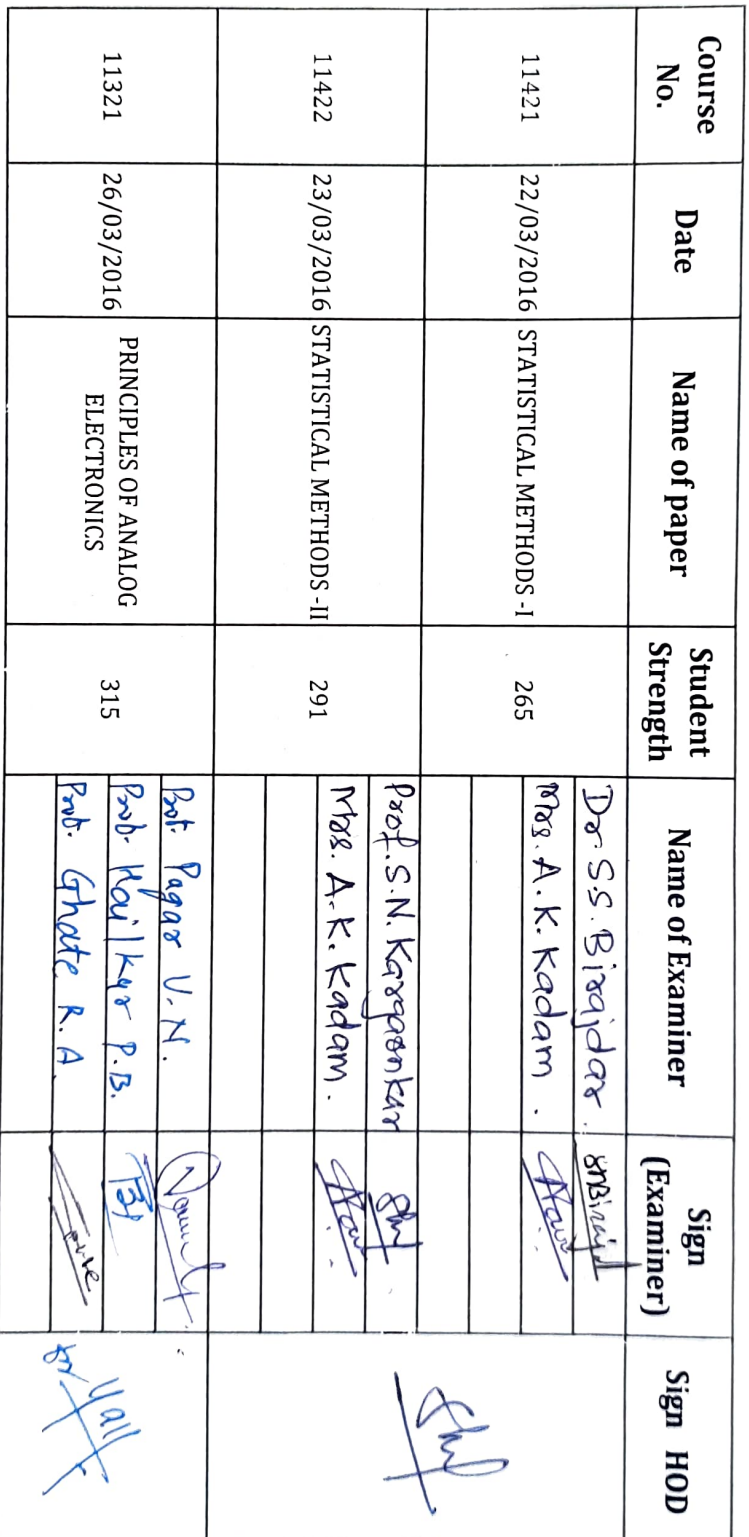 Course No.
Date
Name of paper
Student Strength
Name of Examiner
Sign (Examiner)
Sign HOD
11421
22/03/2016
STATISTICAL METHODS -I
265
Dr. S.S. Birajdar.
Mrs. A.K. Kadam.
11422
23/03/2016
STATISTICAL METHODS -II
291
Prof. S.N. Kargaonkar
Mrs. A.K. Kadam.
11321
26/03/2016
PRINCIPLES OF ANALOG
ELECTRONICS
315
Prof. Pagar V.N.
Prof. P.B.
Prof. Ghate R.A